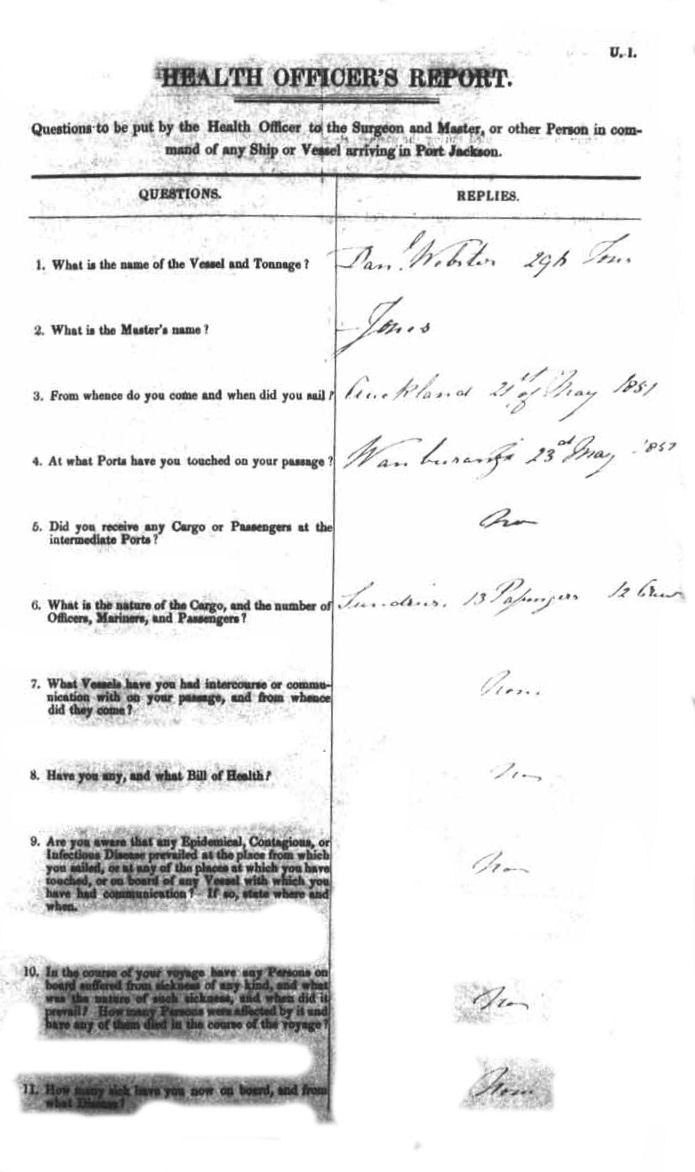 U. 1.
HEALTH OFFICER'S REPORT.
Questions to be put by the Health Officer to the Surgeon and Master, or other Person in com-
mand of any Ship or Vessel arriving in Port Jackson.
QUESTIONS. REPLIES.
1. What is the name of the Vessel and Tonnage? Danl. Webster Tons
2. What is the Master's name? Jones
3. From whence do you come and when did you sail? Auckland 21st of May 1851
4. At what Ports have you touched on your passage? 23rd May 1851
5. Did you receive any Cargo or Passengers at the
intermediate Ports? No
6. What is the nature of the Cargo, and the number of Sundries. 13 Passengers 12 Crew
Officers, Mariners, and Passengers?
7. What Vessels have you had intercourse or commu-
nication with on your passage, and from whence None
did they come?
8. Have you any, and what Bill of Health? No
9. Are you aware that any Epidemical, Contagious, or
Infectious Disease prevailed at the place from which
you sailed, or at any of the places at which you have No
touched, or on board of any Vessel with which you
have had communication? If so, state where and
when.
10. In the course of your voyage have any Persons on
board suffered from sickness of any kind, and what
was the nature of such sickness, and when did it No
prevail? How many Persons were affected by it and
have any of them died in the course of the voyage?
11. How many sick have you now on board, and from None
what Disease?